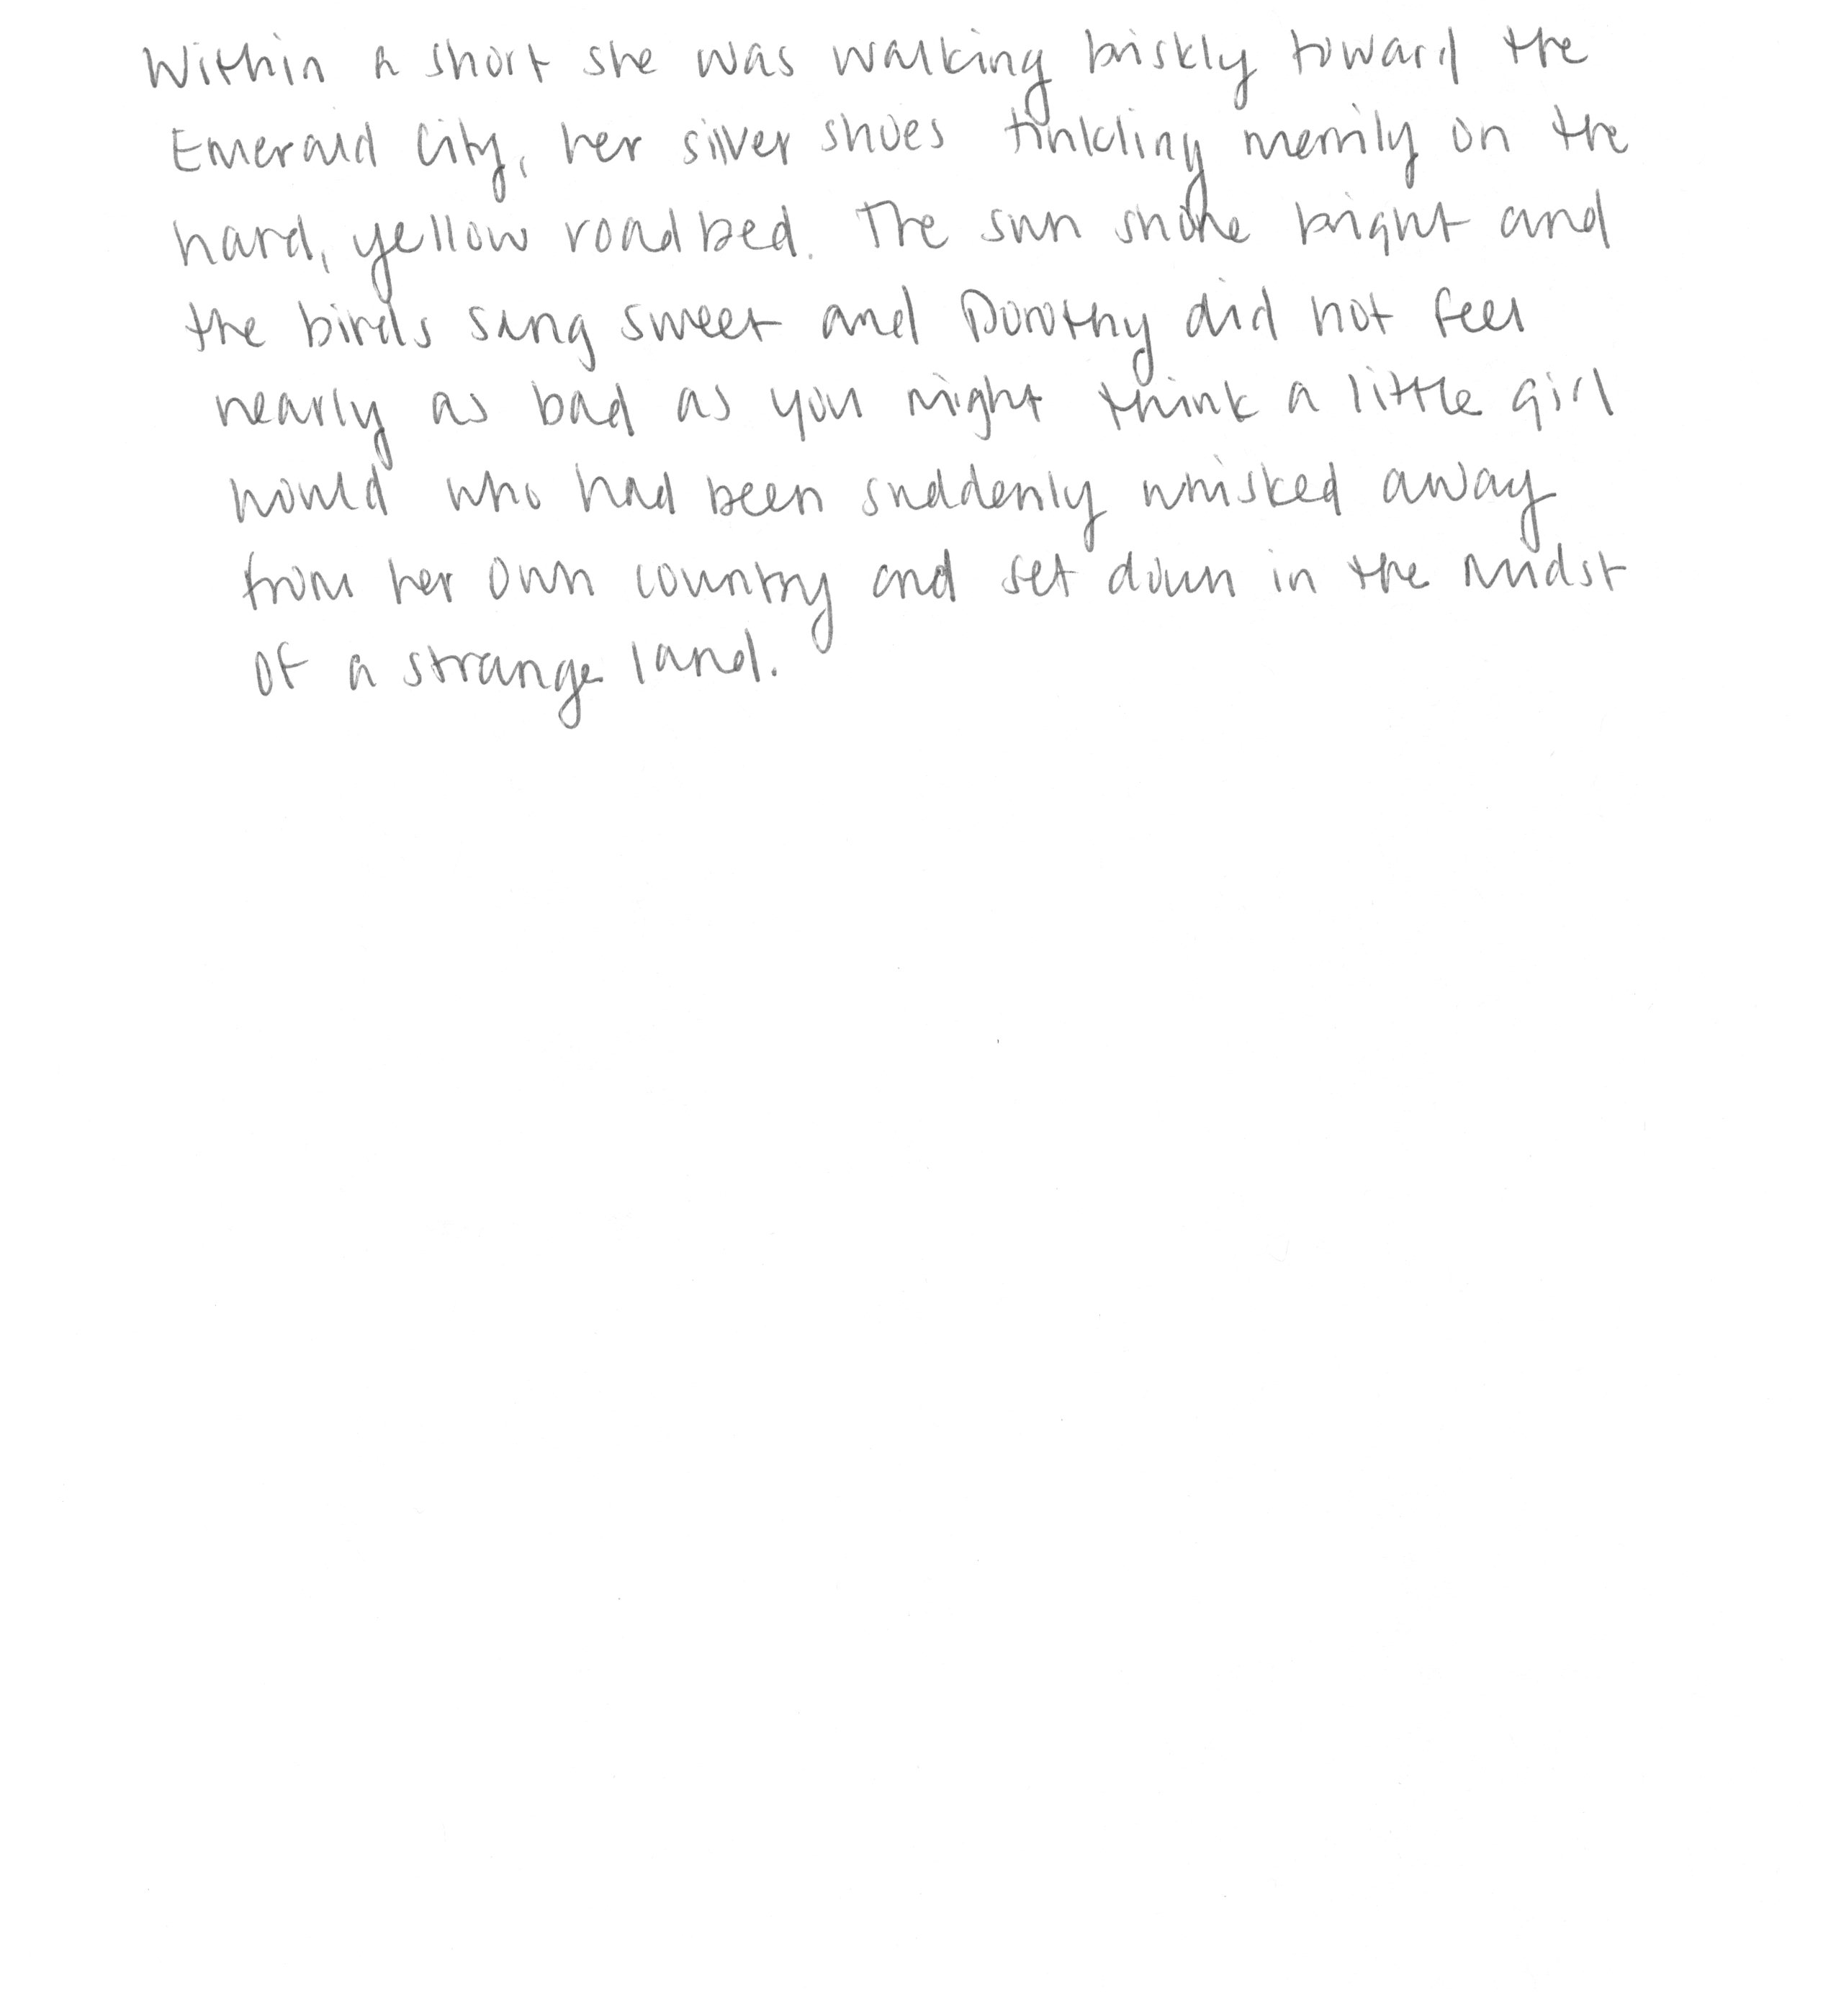 Within a short she was walking briskly toward the
Emerald City, her silver shoes tinkling merrily on the
hard, yellow roadbed. The sun shone bright and
the birds sang sweet and Dorothy did not feel
nearly as bad as you might think a little girl
would who had been suddenly whisked away
from her own country and set down in the midst
of a strange land.